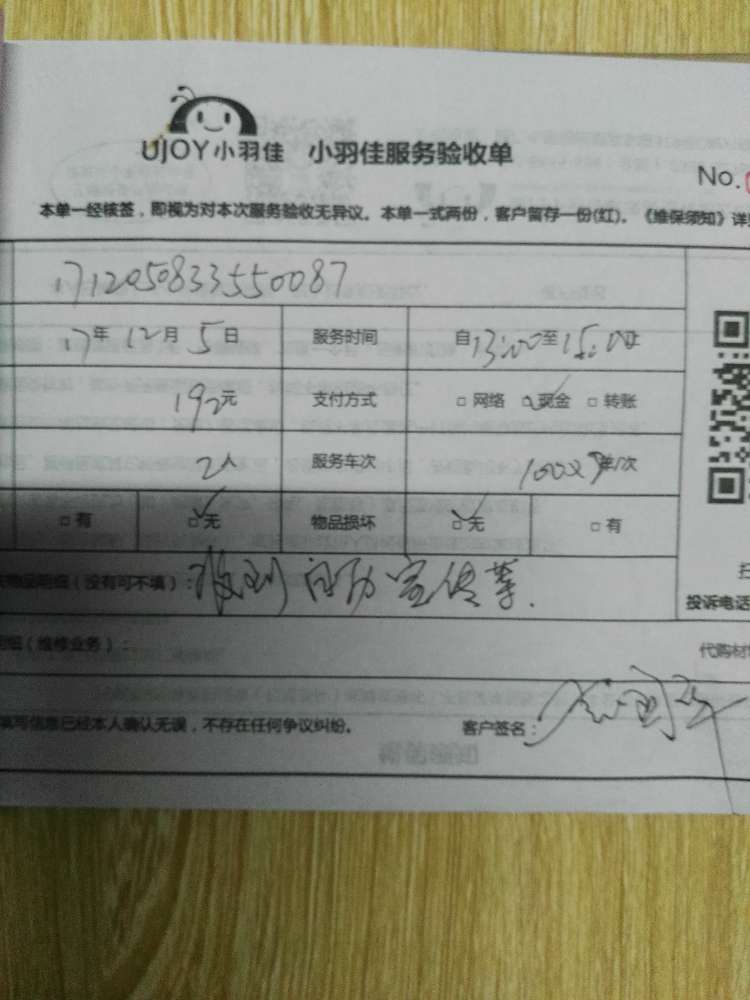 UJOY小羽佳 小羽佳服务验收单
No.
本单一经核签，即视为对本次服务验收无异议。本单一式两份，客户留存一份(红)。《维保须知》详见
1712050833550087
17年12月5日 服务时间 自13:00至15:00止
192元 支付方式 □网络 □现金 □转账
2人 服务车次 单/次
□有 □无 物品损坏 □无 □有
物品明细（没有可不填）：收到
投诉电话
细（维修业务）： 代购材
填写信息已经本人确认无误，不存在任何争议纠纷。 客户签名：